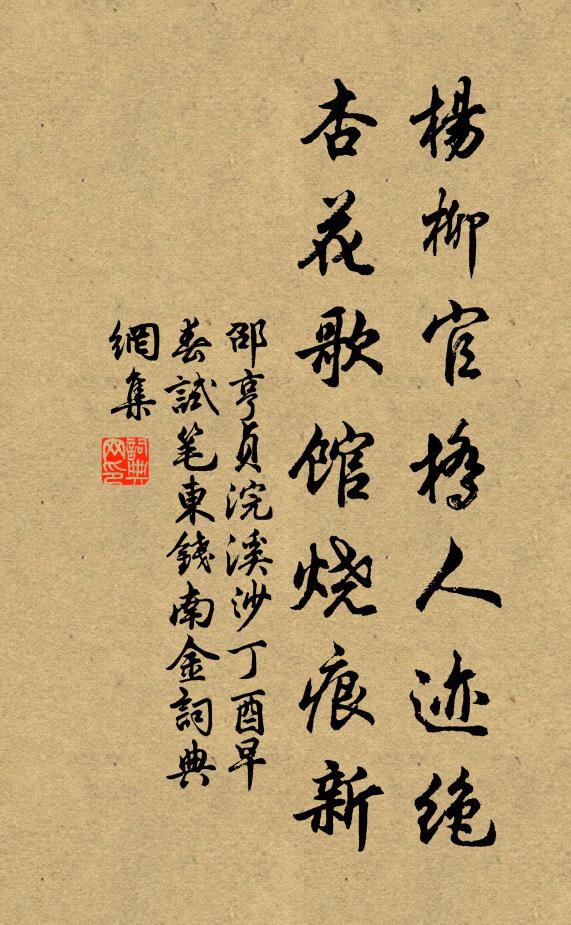 楊柳官橋人迹絶
杏花歌館烧痕新
邵亨貞浣溪沙丁酉早
春試笔東錢南金詞典
網集
詞典网印